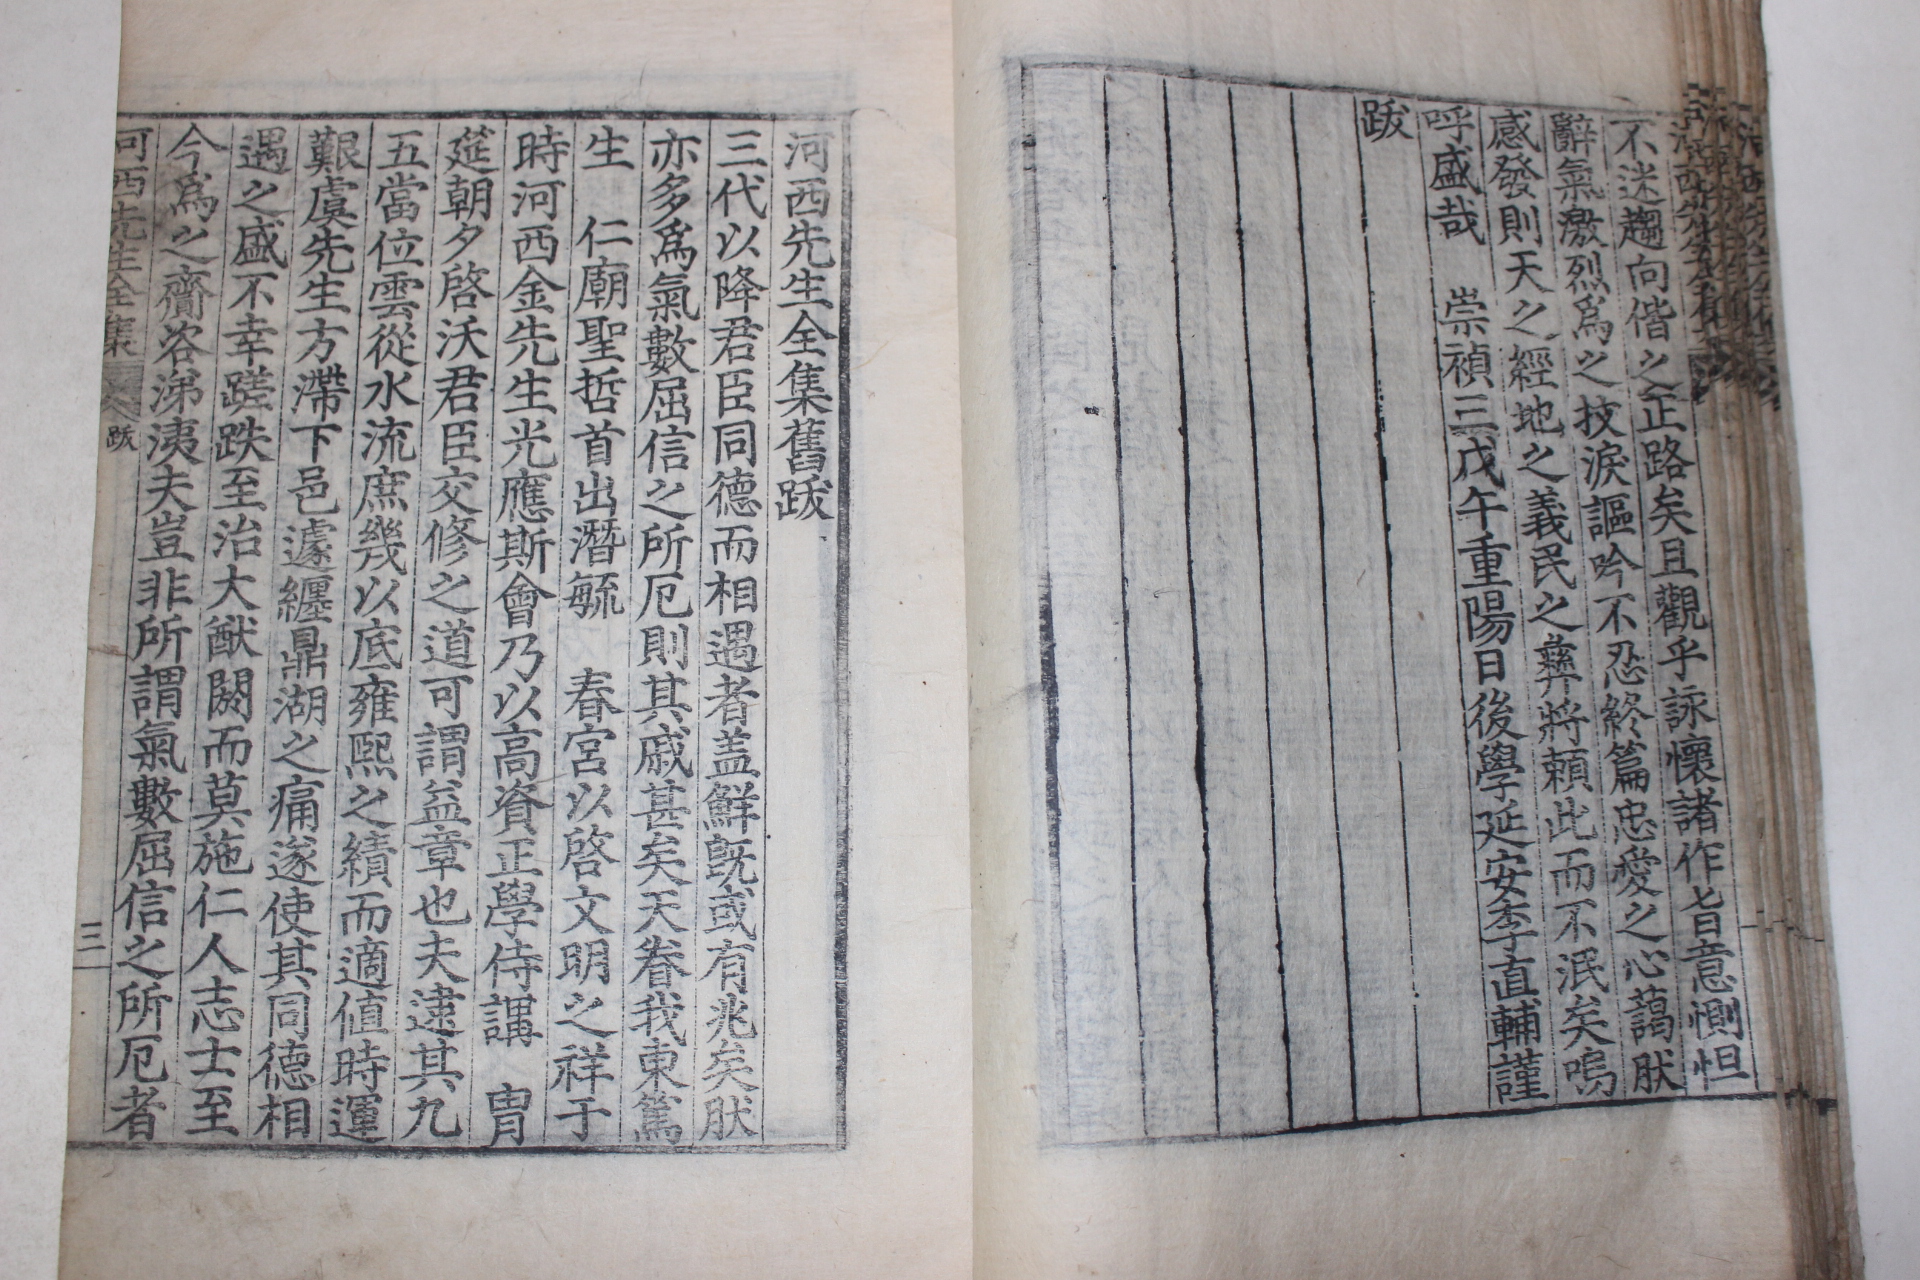 不迷趨向偕之正路矣且觀乎詠懷諸作旨意惻怛
辭氣激烈爲之抆淚謳吟不忍終篇忠愛之心藹肰
感發則天之經地之義民之彝將賴此而不泯矣嗚
呼盛哉　崇禎三戊午重陽日後學延安李直輔謹
跋
河西先生全集舊跋
三代以降君臣同德而相遇者盖鮮旣或有兆矣肰
亦多爲氣數屈信之所厄則其戚甚矣天眷我東篤
生　仁廟聖哲首出潛毓　春宮以啓文明之祥于
時河西金先生光應斯會乃以高資正學侍講　冑
筵朝夕啓沃君臣交修之道可謂益章也夫逮其九
五當位雲從水流庶幾以底雍熙之績而適值時運
艱虞先生方滯下邑遽纏鼎湖之痛遂使其同德相
遇之盛不幸蹉跌至治大猷閼而莫施仁人志士至
今爲之齎咨涕洟夫豈非所謂氣數屈信之所厄者
河西先生全集
跋
三